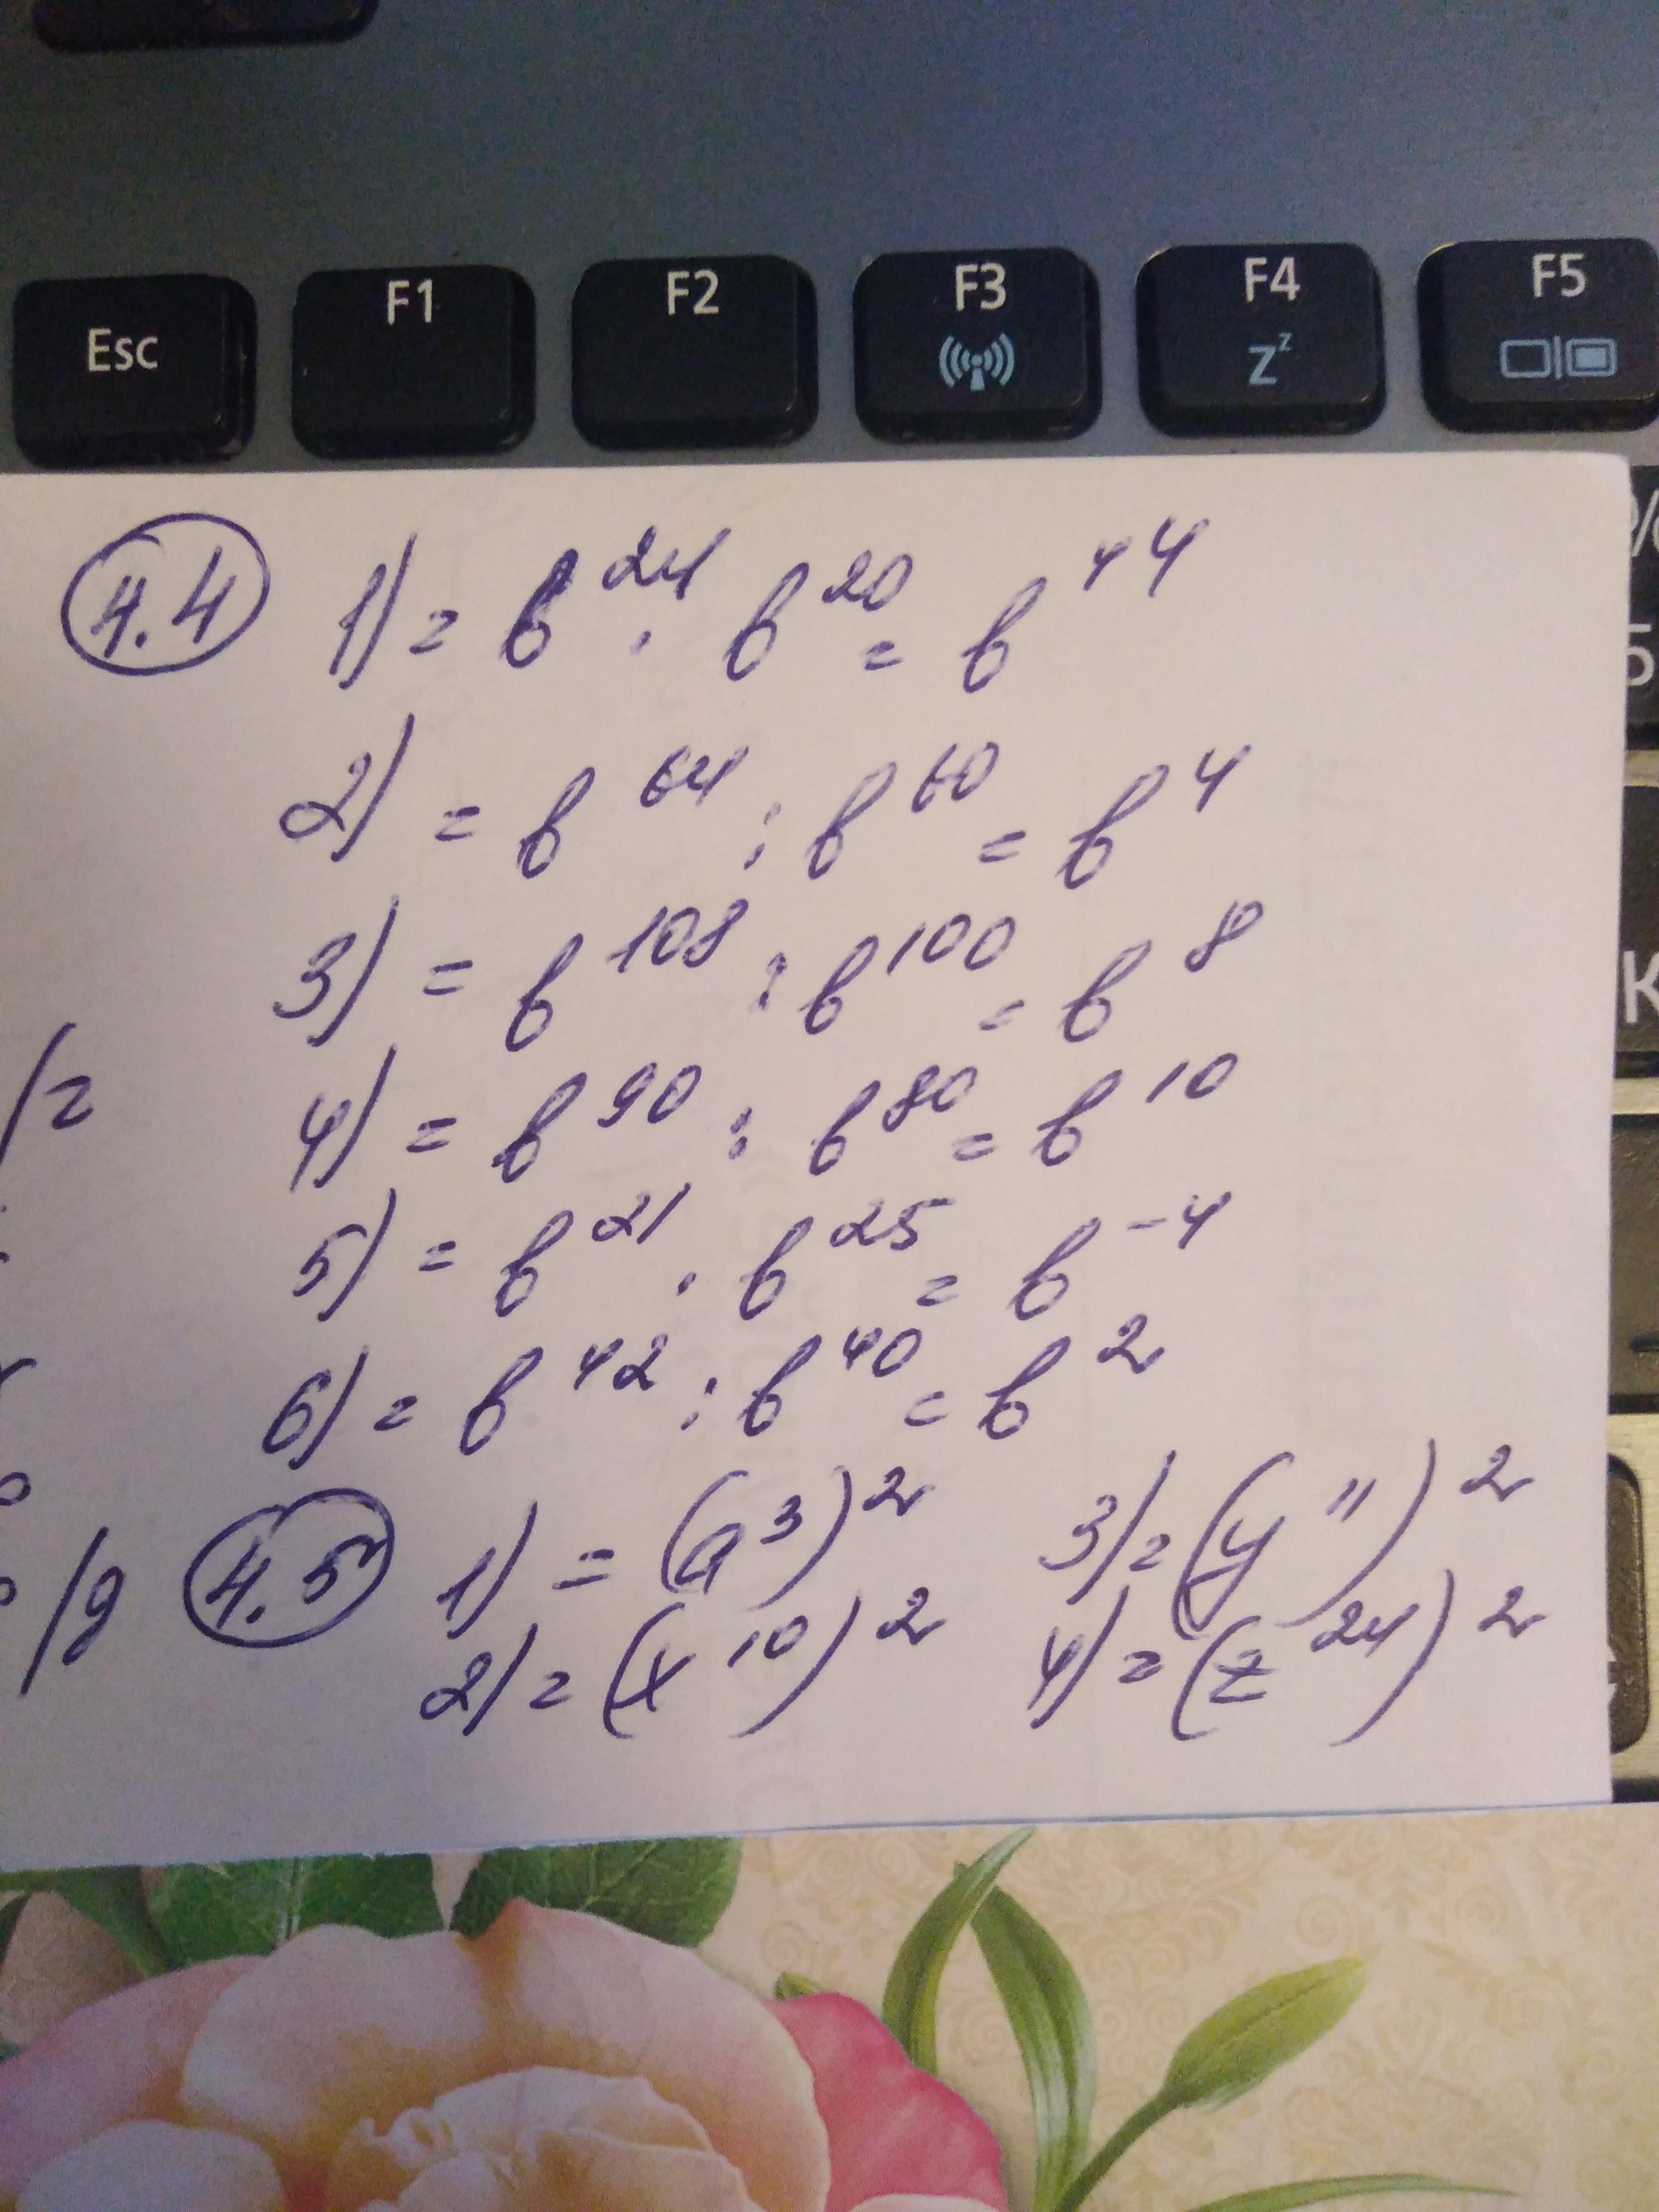 Esc F1 F2 F3 F4 Zz F5
4.4 1) = b^24 · b^20 = b^44
2) = b^64 : b^60 = b^4
3) = b^108 : b^100 = b^8
4) = b^90 : b^80 = b^10
5) = b^21 · b^25 = b^-4
6) = b^42 : b^40 = b^2
4.5 1) = (a^3)^2 3) = (y^11)^2
2) = (x^10)^2 4) = (z^24)^2